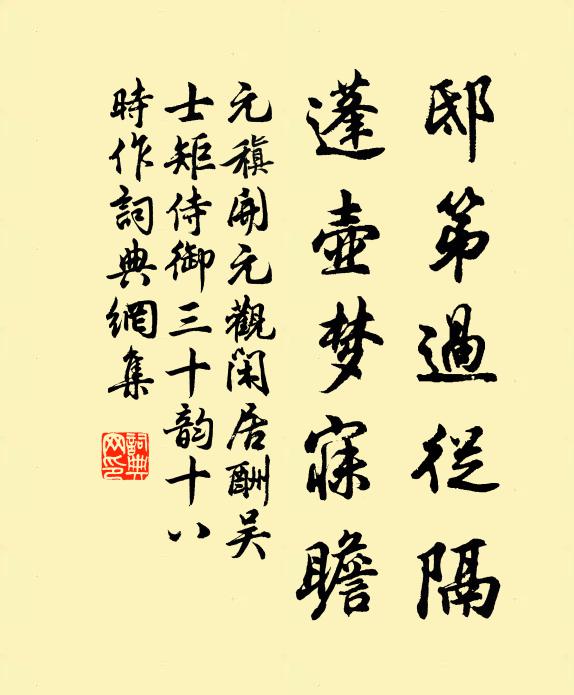 邸第過從隔
蓬壺梦寐瞻
元稹開元觀闲居酬吴
士矩侍御三十韵十八
時作詞典網集
詞典
网印